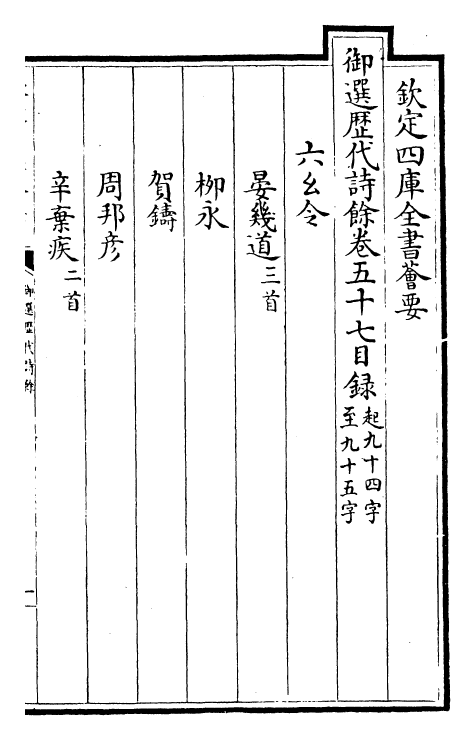 欽定四庫全書薈要
御選歴代詩餘卷五十七目録起九十四字
至九十五字
六幺令
晏幾道三首
柳永
賀鑄
周邦彦
辛棄疾二首
御選歴代詩餘
一